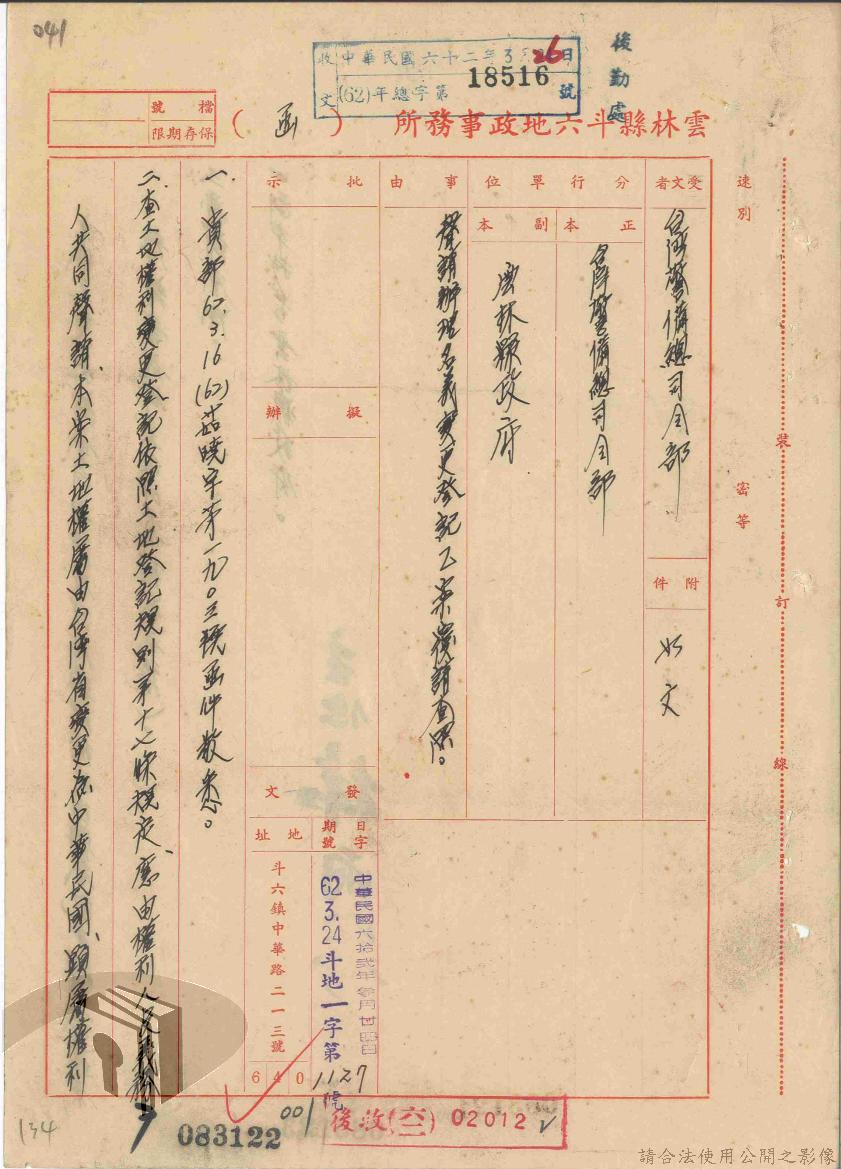 041
收文
中華民國六十二年3月26日
(62)年總字第18516號
後勤處
檔號
保存期限
雲林縣斗六地政事務所(函)
速別
密等
裝
訂
線
受文者
台灣警備總司令部
附件
如文
分行單位
正本
台灣警備總司令部
副本
雲林縣政府
事由
聲請辦理名義變更登記乙案復請查照。
批示
擬辦
發文
日期
字號
中華民國六拾貳年參月廿四日
62.3.24斗地一字第1127號
地址
斗六鎮中華路二一三號
640
001
一、貴部62.3.16(62)莒曉字第一九〇三號函件敬悉。
二、查土地權利變更登記依照土地登記規則第十七條規定、應由權利人及義務
人共同聲請、本案土地權屬由台灣省變更為中華民國、顯屬權利
083122
後收(六二)02012
134
請合法使用公開之影像